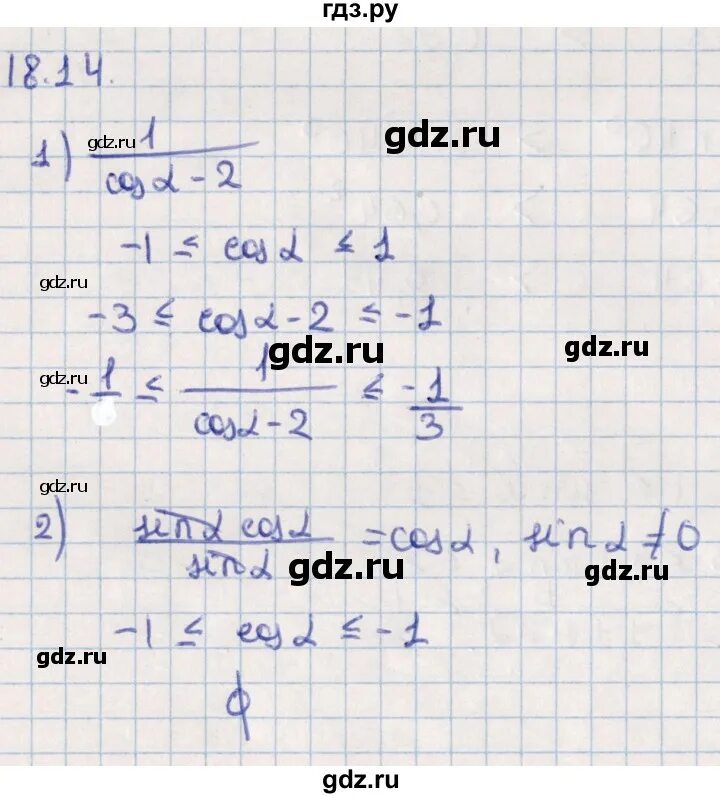 гдз.ру
18.14.
gdz.ru
gdz.ru
1) 1/(cos α - 2)
-1 ≤ cos α ≤ 1
gdz.ru
-3 ≤ cos α - 2 ≤ -1
gdz.ru
gdz.ru
gdz.ru
-1/ ≤ 1/(cos α - 2) ≤ -1/3
gdz.ru
2) sin α cos α / sin α = cos α, sin α ≠ 0
gdz.ru
gdz.ru
-1 ≤ cos α ≤ -1
gdz.ru
ϕ
gdz.ru